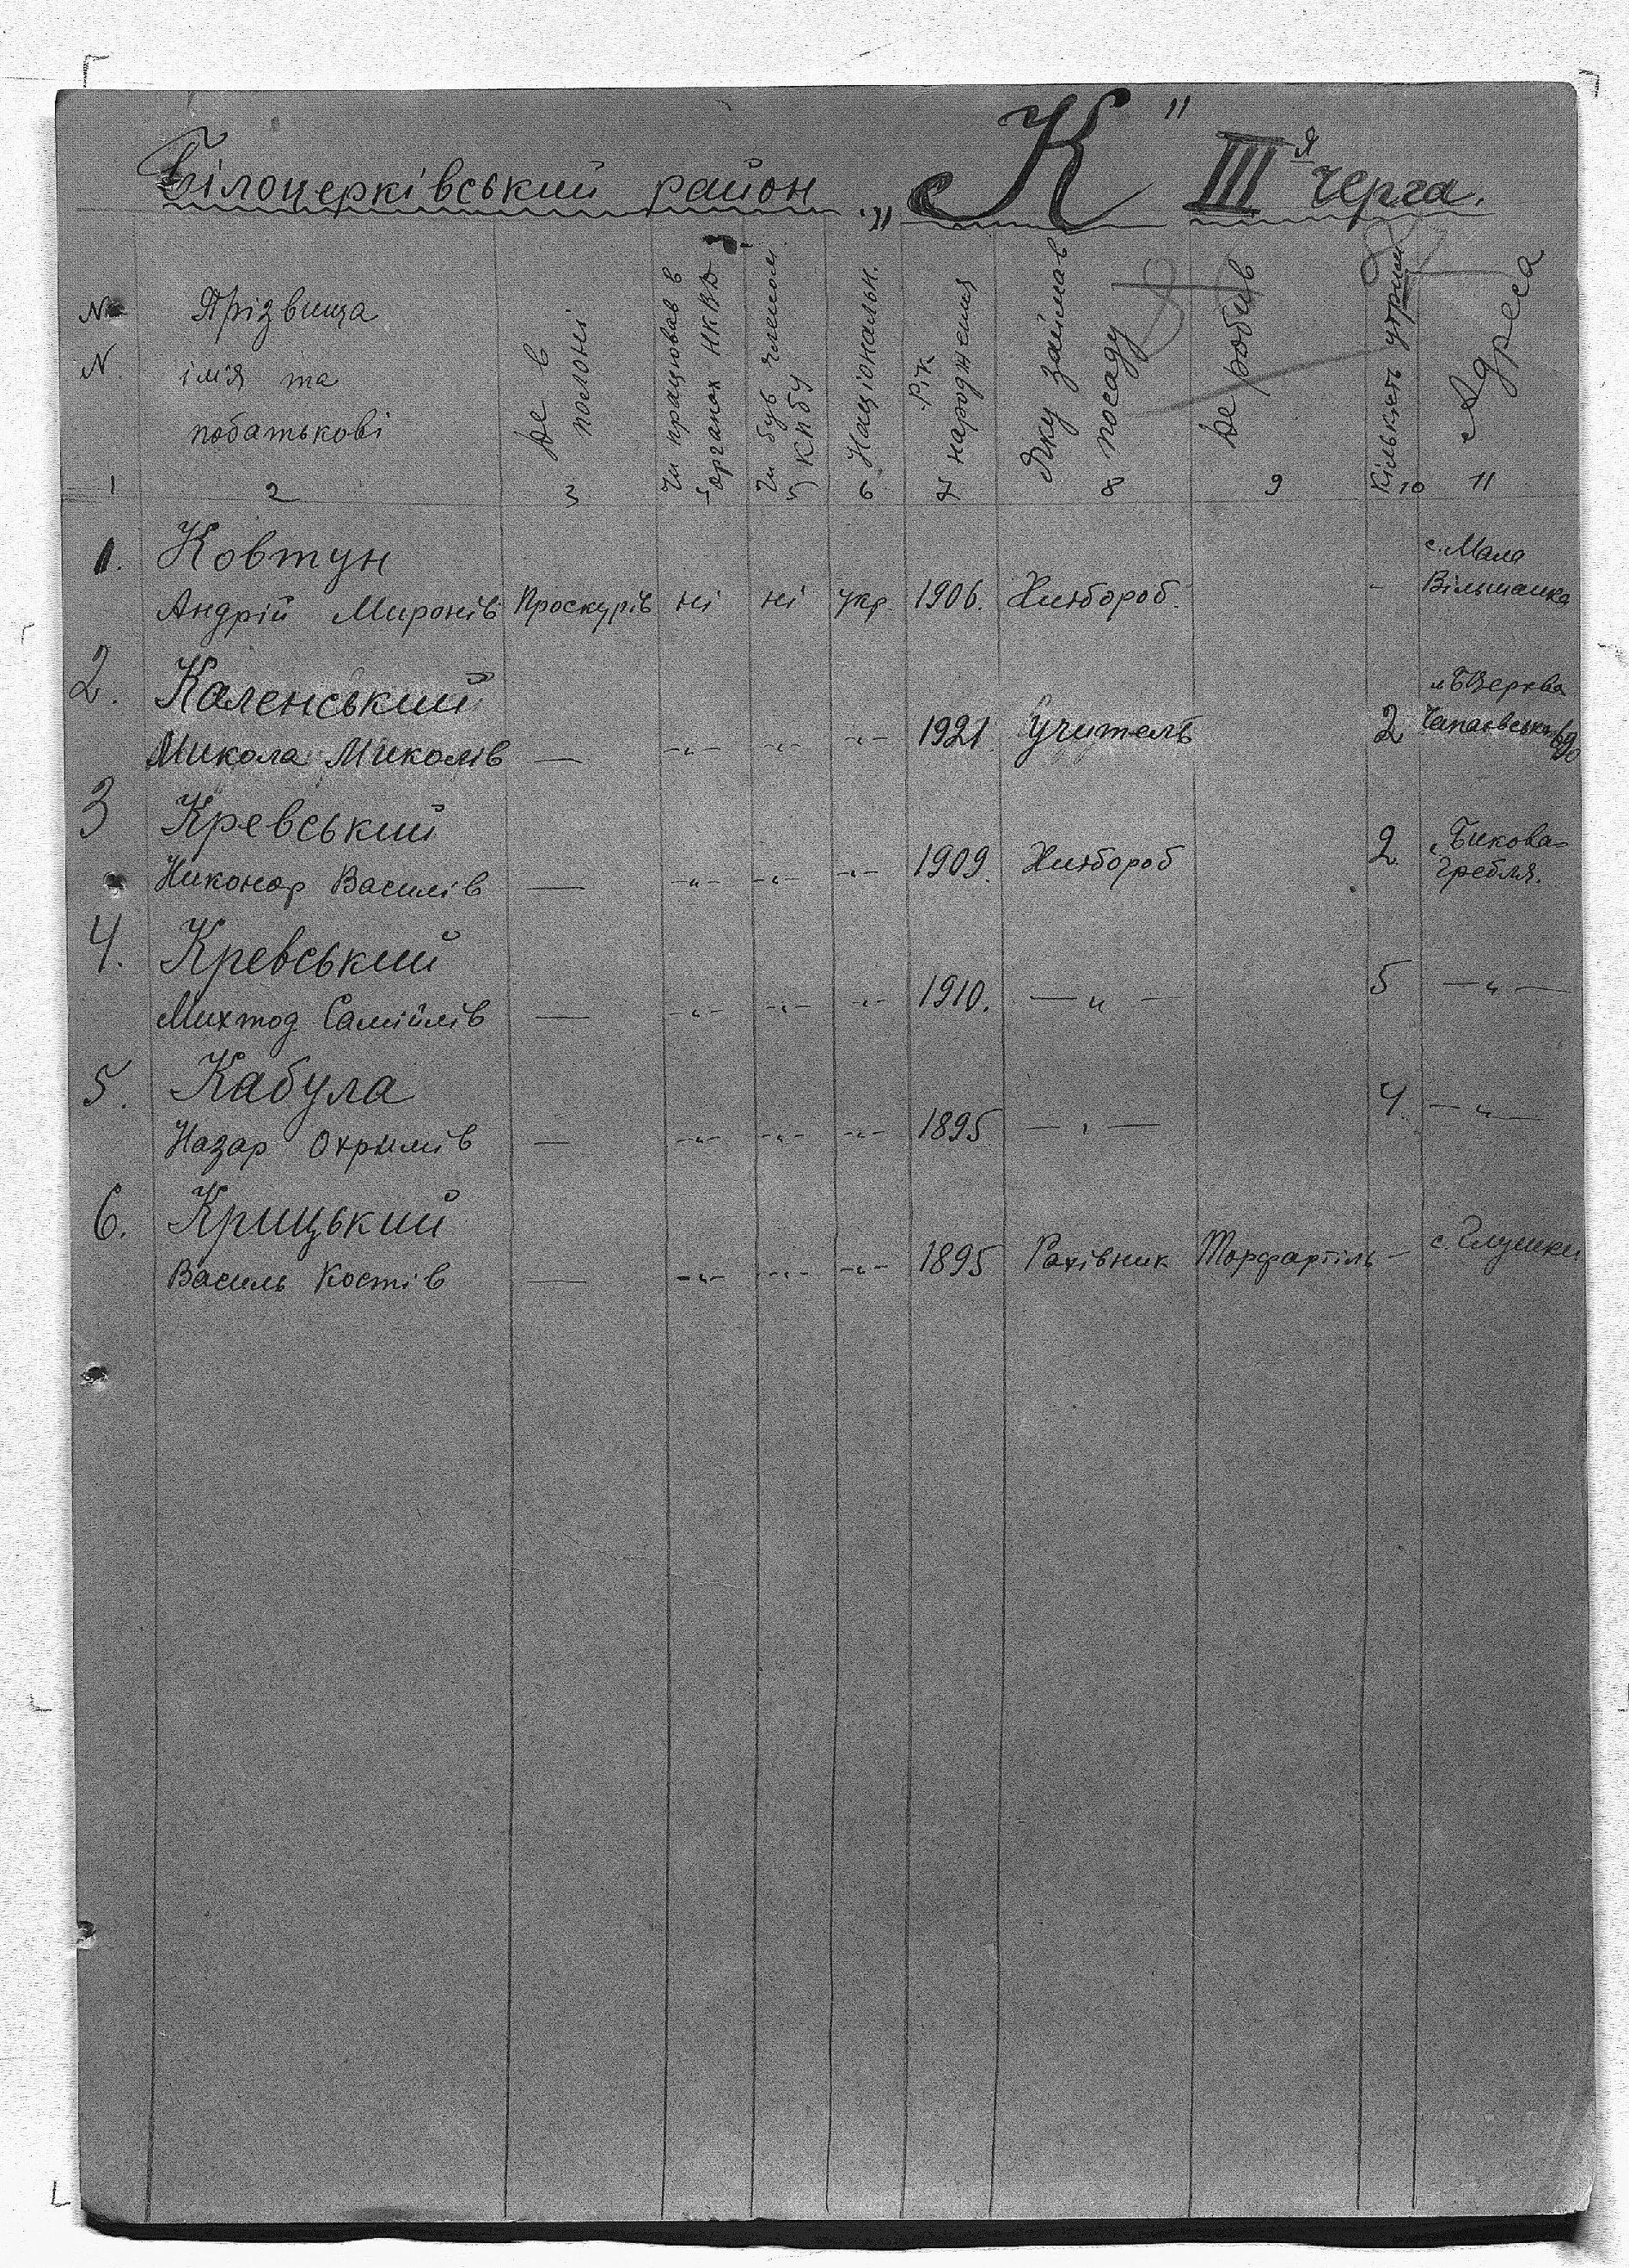 Білоцерківський район „К" III я черга.
№ N.
Прізвища
ім'я та
побатькові
Де в полоні
Чи працював в органах НКВД
Чи був членом КПбУ
Національн.
Рік народження
Яку займав посаду
Де робив
Кількість утрим
Адреса
1 2 3 4 5 6 7 8 9 10 11
1. Ковтун
с. Мала
Андрій Миронів Проскурів ні ні укр. 1906. Хлібороб. - Вільшанка
2. Каленський
м БЦерква
Микола Миколів — -"- -"- -"- 1921. Учитель 2 Чапаєвська
3 Кревський
Никонор Василів — -"- -"- -"- 1909. Хлібороб 2 с. Бикова-
гребля.
4. Кревський
Самійлів — -"- -"- -"- 1910. —"— 5 —"—
5. Кабула
Назар Охримів — -"- -"- -"- 1895 —"— 4. —"—
6. Крицький
Василь Костів — -"- -"- -"- 1895 Рахівник - с. Глушки